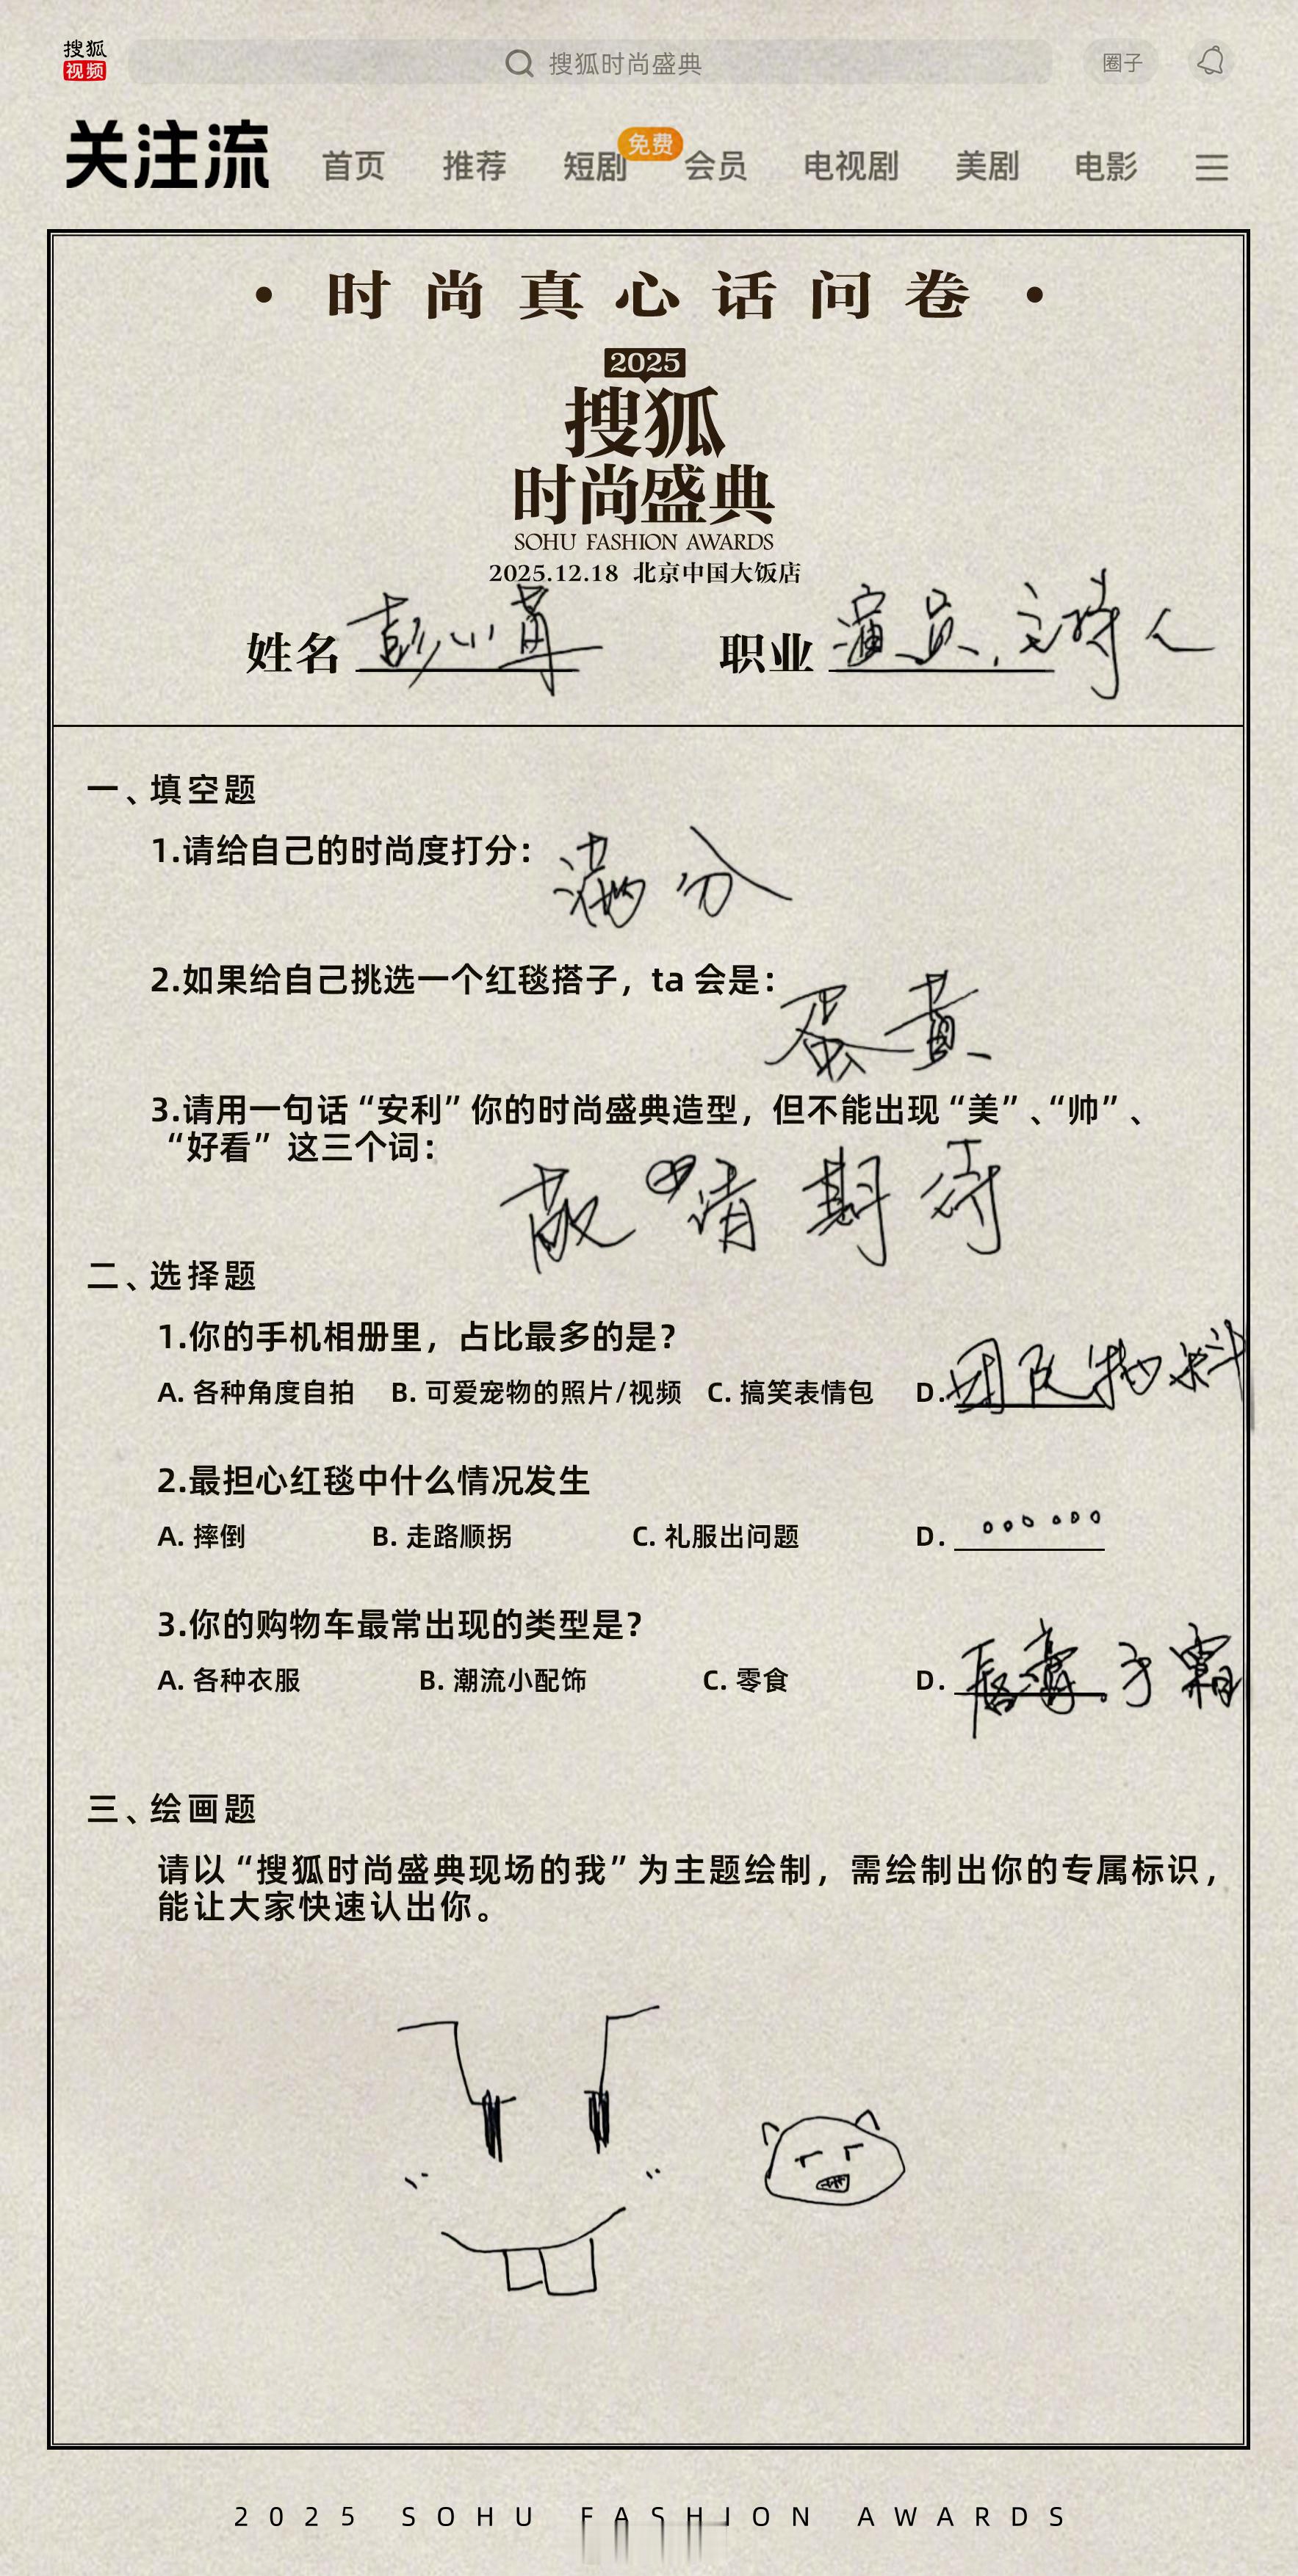 搜狐
视频
搜狐时尚盛典
圈子
关注流 首页 推荐 短剧 免费 会员 电视剧 美剧 电影
·时尚真心话问卷·
2025
搜狐
时尚盛典
SOHU FASHION AWARDS
2025.12.18 北京中国大饭店
姓名 彭小苒 职业 演员、主持人
一、填空题
1.请给自己的时尚度打分：满分
2.如果给自己挑选一个红毯搭子，ta 会是：蛋黄
3.请用一句话“安利”你的时尚盛典造型，但不能出现“美”、“帅”、
“好看” 这三个词：
敬请期待
二、选择题
1.你的手机相册里，占比最多的是？
A. 各种角度自拍 B. 可爱宠物的照片/视频 C. 搞笑表情包 D. 团队物料
2.最担心红毯中什么情况发生
A. 摔倒 B. 走路顺拐 C. 礼服出问题 D. 。。。。。。
3.你的购物车最常出现的类型是？
A. 各种衣服 B. 潮流小配饰 C. 零食 D. 唇膏、手霜
三、绘画题
请以“搜狐时尚盛典现场的我”为主题绘制，需绘制出你的专属标识，
能让大家快速认出你。
2025 SOHU FASHION AWARDS